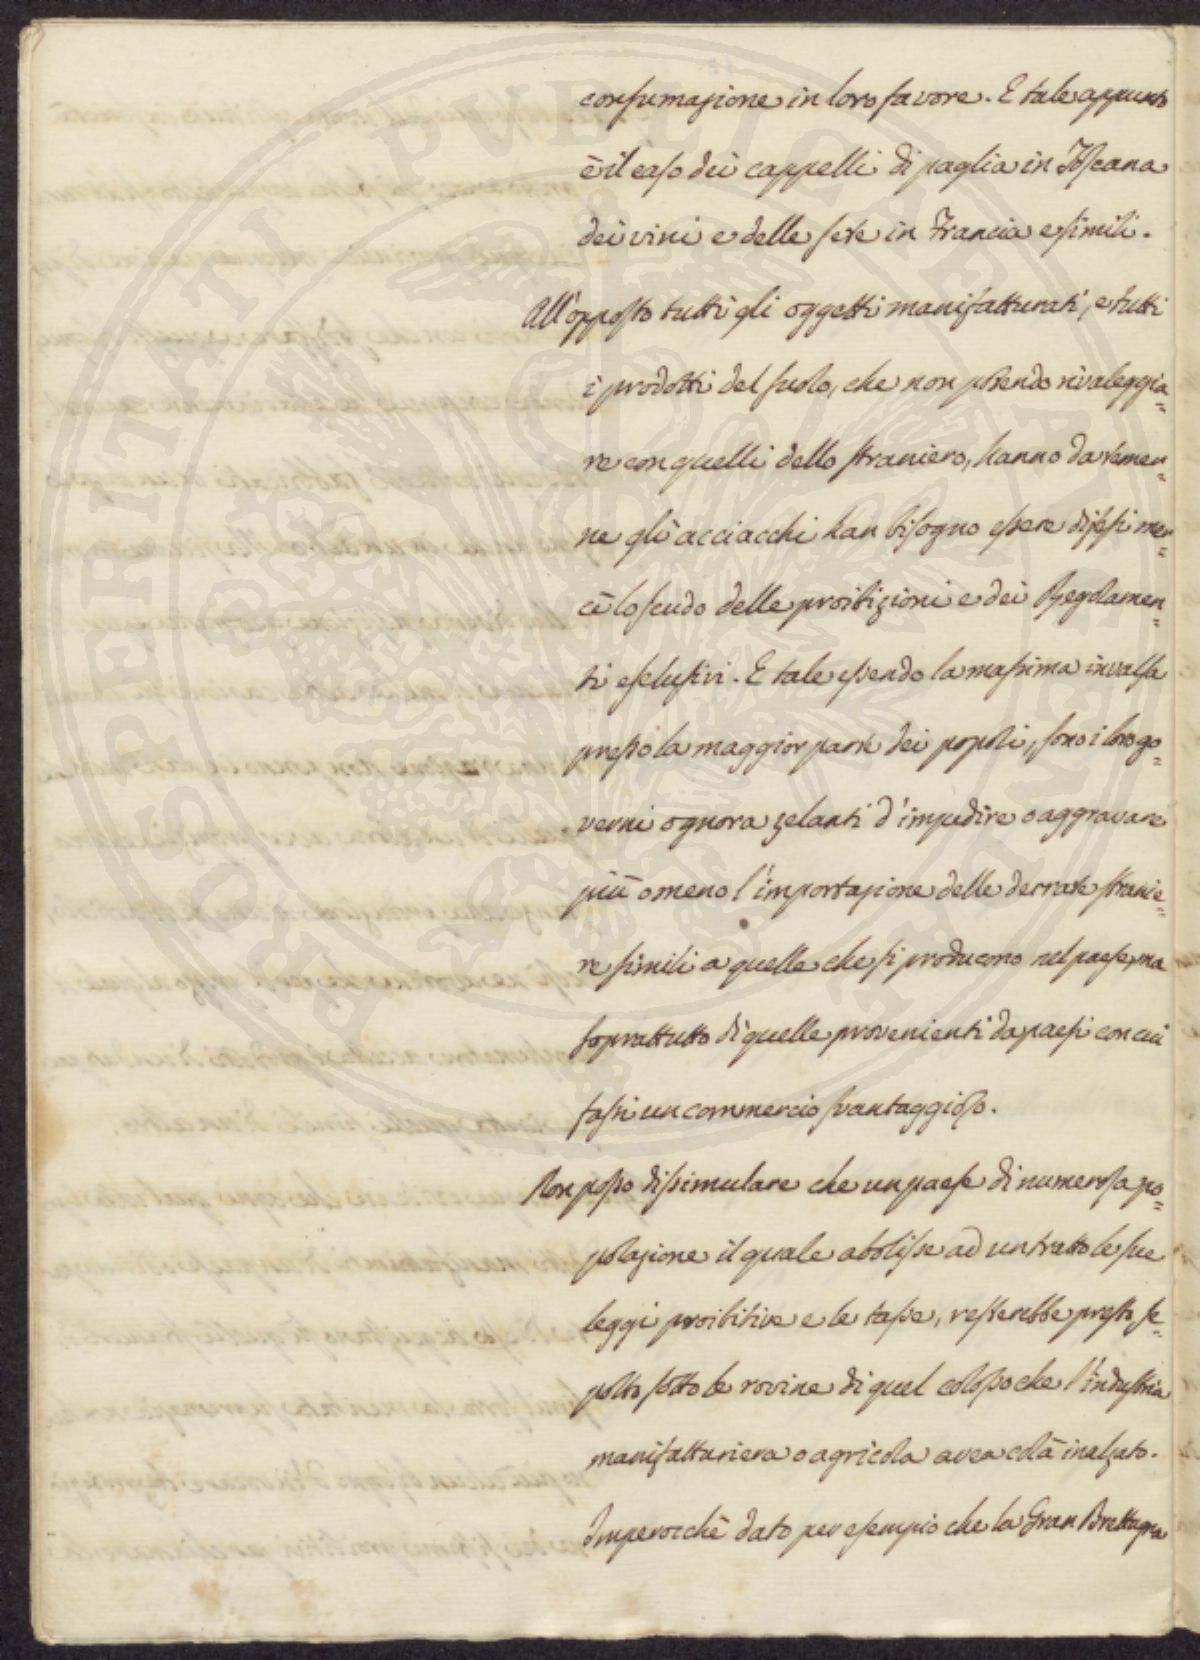 consumazione in loro favore. E tale appunto
è il caso dei cappelli di paglia in Toscana
dei vini e delle sete in Francia e simili.
All'opposto tutti gli oggetti manifatturati, e tutti
i prodotti del suolo, che non potendo rivaleggia=
re con quelli dello straniero, hanno da temer=
ne gli acciacchi han bisogno essere difesi mer=
cè lo scudo delle proibizioni e dei Regolamen=
ti esclusivi. E tale essendo la massima invalsa
presso la maggior parte dei popoli, sono i loro go=
verni ognora zelanti d'impedire o aggravare
più o meno l'importazione delle derrate stranie=
re simili a quelle che si producono nel paese, ma
soprattutto di quelle provenienti da paesi con cui
fassi un commercio svantaggioso.
Non posso dissimulare che un paese di numerosa po=
polazione il quale abolisse ad un tratto le sue
leggi proibitive e le tasse, resterebbe presto se=
polto sotto le rovine di quel colosso che l'industria
manifatturiera o agricola avea colà inalzato.
Imperocchè dato per esempio che la Gran Brettagna
PROSPERITATI PUBLICAE AUGENDAE